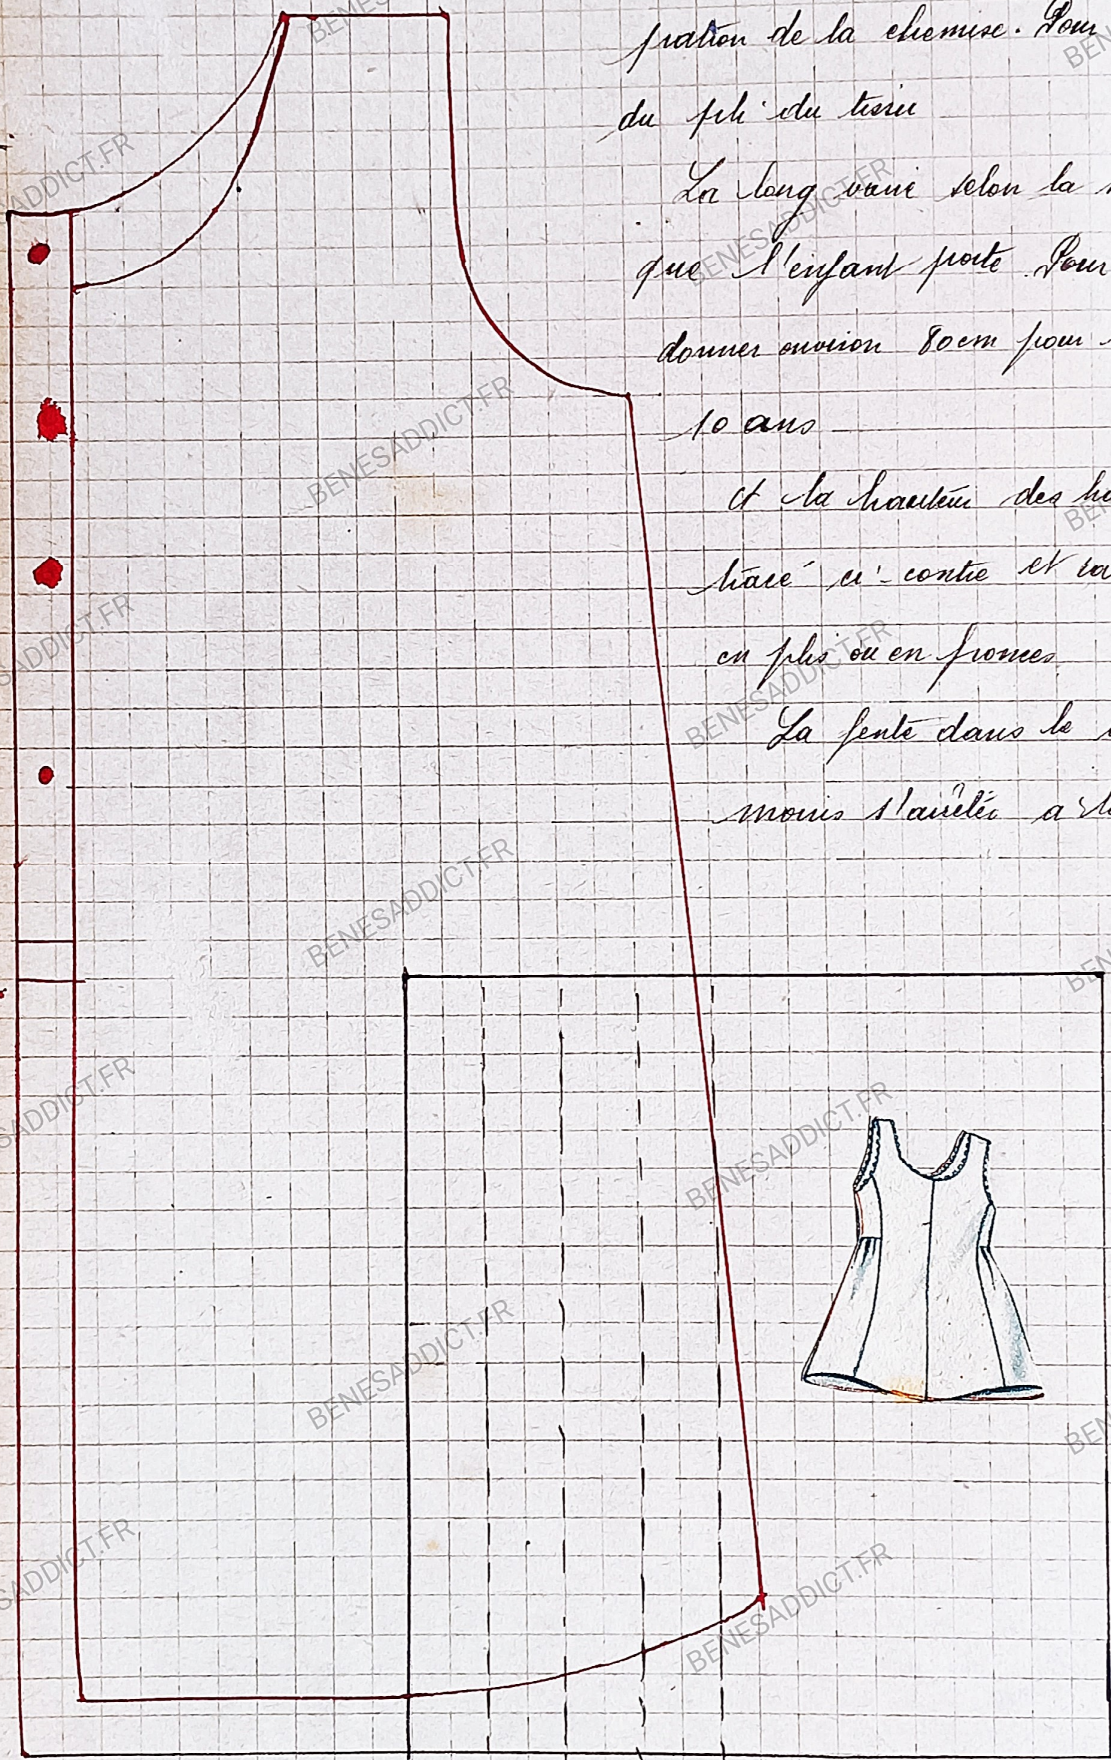 pration de la chemise. Pour
du pli du tissu
La long varie selon la
que l'enfant porte. Pour
donner environ 80cm pour
10 ans
et la hauteur des
tracé ci-contre et
en plis ou en fronces
La fente dans le
moins s'arrêter a
BENESADDICT.FR